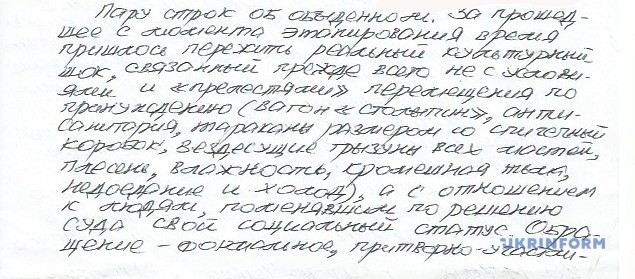 Пару строк об обыденном. За прошед-
шее с момента этапирования время
пришлось пережить реальный культурный
шок, связанный прежде всего не с услови-
ями и «прелестями» перемещения по
принуждению (вагон «столыпин», анти-
санитария, тараканы размером со спичечный
коробок, вездесущие грызуны всех мастей,
плесень, влажность, кромешная тьма,
недоедание и холод), а с отношением
к людям, поменявшим по решению
суда свой социальный статус. Обра-
щение - формальное, притворно-участли-
UKRINFORM